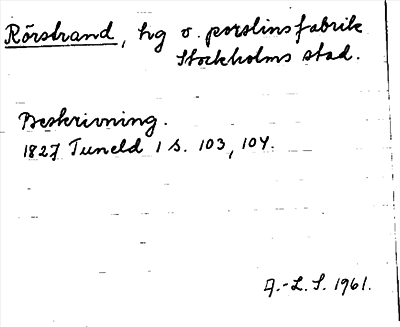 Rörstrand, hg o. porslinsfabrik
Stockholms stad.
Beskrivning.
1827 Tuneld 1 s. 103, 104.
A.-L. S. 1961.